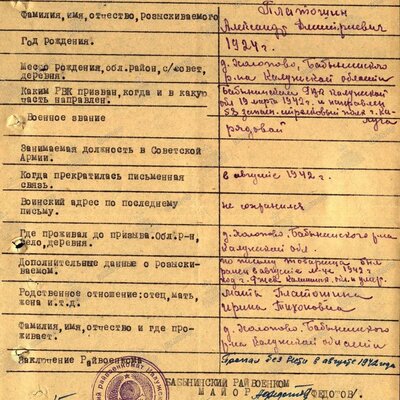 Фамилия,имя,отчество,розыскиваемого Платошин
Александр Дмитриевич
Год рождения. 1924 г.
Место рождения,обл.район,с/совет, д. Холопово, Бабынинского
деревня. р-на Калужской области
Каким РВК призван,когда и в какую Бабынинским РВК Калужской
часть направлен. обл 19 марта 1942 г. и направлен
58 запасн. стрелковый полк г. Калуга
Военское звание рядовой
Занимаемая должность в Советской
Армии.
Когда прекратилась письменная в августе 1942 г.
связь.
Воинский адрес по последнему не сохранился
письму.
Где проживал до призыва. Обл.р-н, д. Холопово, Бабынинского р-на
село,деревня. Калужской обл.
Дополнительные данные о розыски- по письму товарища был
ваемом. ранен в августе 1942 г
под г. Ржев Калинин. обл и умер.
Родственное отношение:отец,мать, Мать Платошина
жена и.т.д. Ирина Тихоновна
Фамилия,имя,отчество и где про- д. Холопово, Бабынинского
живает. р-на Калужской области
Заключение Райвоенкома Пропал без вести в августе 1942 года
БАБЫНИНСКИЙ РАЙВОЕНКОМ
МАЙОР /ФЕДОТОВ/.